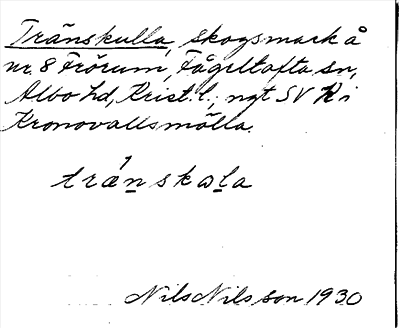 Tränskulla, skogsmark å
nr. 8 Frörum, Fågeltofta sn,
Albo hd, Krist. l., ngt SV K i
Kronovallsmölla.
trä́nskɷla
Nils Nilsson 1930